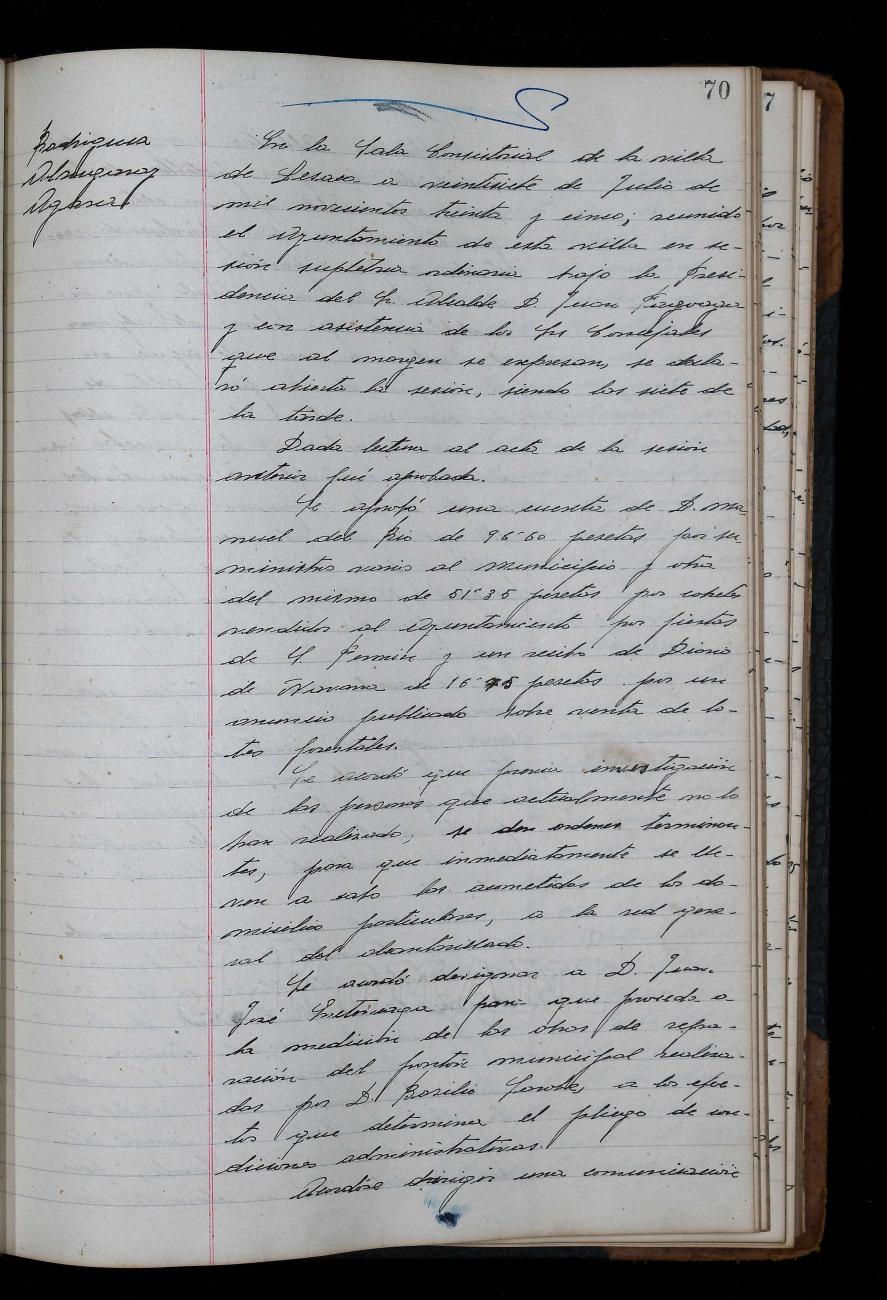 70
Rodriguez
Almgaraz
Agara
En la Sala Consistorial de la villa
de Lesaca a veintisiete de Julio de
mil novecientos treinta y cinco; reunido
el Ayuntamiento de esta villa en se-
sión supletoria ordinaria bajo la Presi-
dencia del Sr. Alcalde D. Juan
y con asistencia de los Srs Concejales
que al margen se expresan, se decla-
ró abierta la sesión, siendo las siete de
la tarde.
Dada lectura al acta de la sesión
anterior fué aprobada.
Se aprobó una cuenta de D. Ma-
nuel del Rio de 96'60 pesetas por su-
ministro vario al municipio y otra
del mismo de 51'35 pesetas por cohetes
vendidos al Ayuntamiento por fiestas
de S. Fermin y un recibo de Diario
de Navarra de 16'75 pesetas por un
anuncio publicado sobre venta de lo-
tes forestales.
Se acordó que previa investigación
de las personas que actualmente no lo
han realizado, se den ordenes terminan-
tes, para que inmediatamente se lle-
ven a cabo las acometidas de los do-
micilios particulares, a la red gene-
ral del alcantarillado.
Se acordó designar a D. Juan
José para que proceda a
la medición de las obras de repa-
ración del frontón municipal realiza-
das por D. Basilio a los efec-
tos que determina el pliego de con-
diciones administrativas.
Acordóse dirigir una comunicación